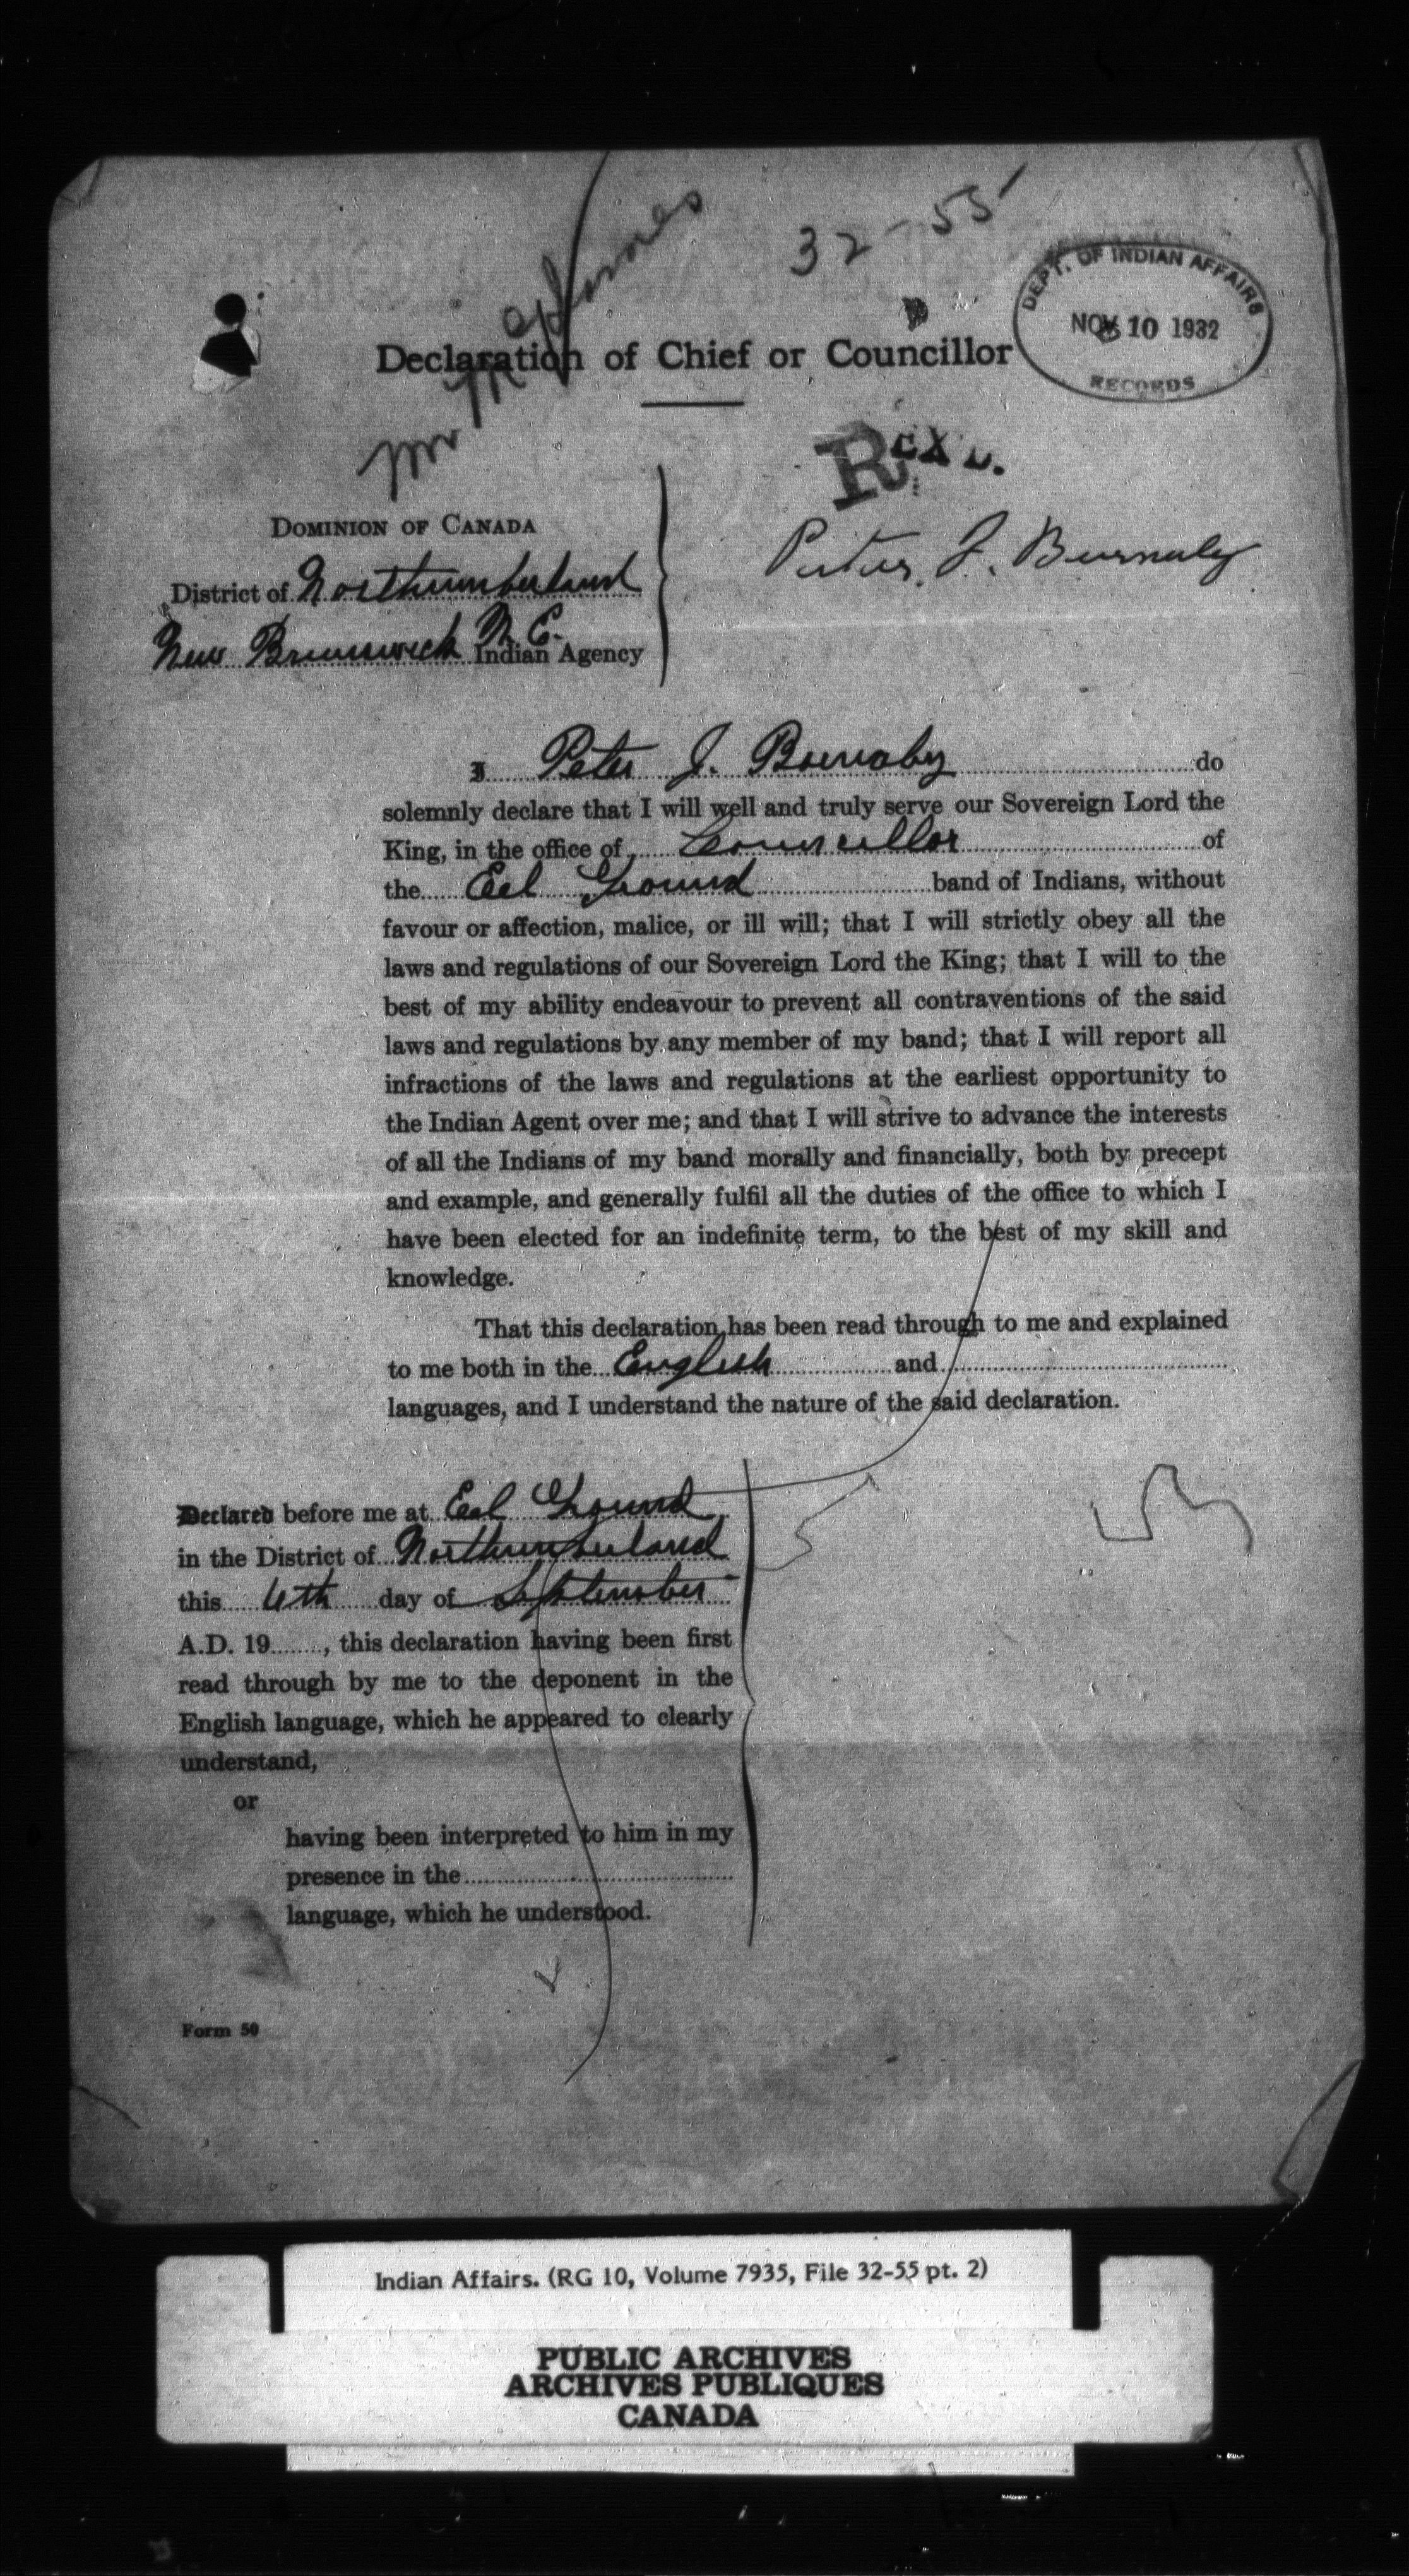 32-55
DEPT. OF INDIAN AFFAIRS
NOV 10 1932
RECORDS
Declaration of Chief or Councillor
Mr
DOMINION OF CANADA
District of Northumberland
New Brunswick N. E. Indian Agency
Peter J. Burnaby
I Peter J. Burnaby do
solemnly declare that I will well and truly serve our Sovereign Lord the
King, in the office of Councillor of
the Eel Ground band of Indians, without
favour or affection, malice, or ill will; that I will strictly obey all the
laws and regulations of our Sovereign Lord the King; that I will to the
best of my ability endeavour to prevent all contraventions of the said
laws and regulations by any member of my band; that I will report all
infractions of the laws and regulations at the earliest opportunity to
the Indian Agent over me; and that I will strive to advance the interests
of all the Indians of my band morally and financially, both by precept
and example, and generally fulfil all the duties of the office to which I
have been elected for an indefinite term, to the best of my skill and
knowledge.
That this declaration has been read through to me and explained
to me both in the English and
languages, and I understand the nature of the said declaration.
Declared before me at Eel Ground
in the District of Northumberland
this 6th day of September
A.D. 19, this declaration having been first
read through by me to the deponent in the
English language, which he appeared to clearly
understand,
or
having been interpreted to him in my
presence in the
language, which he understood.
Form 50
Indian Affairs. (RG 10, Volume 7935, File 32-55 pt. 2)
PUBLIC ARCHIVES
ARCHIVES PUBLIQUES
CANADA